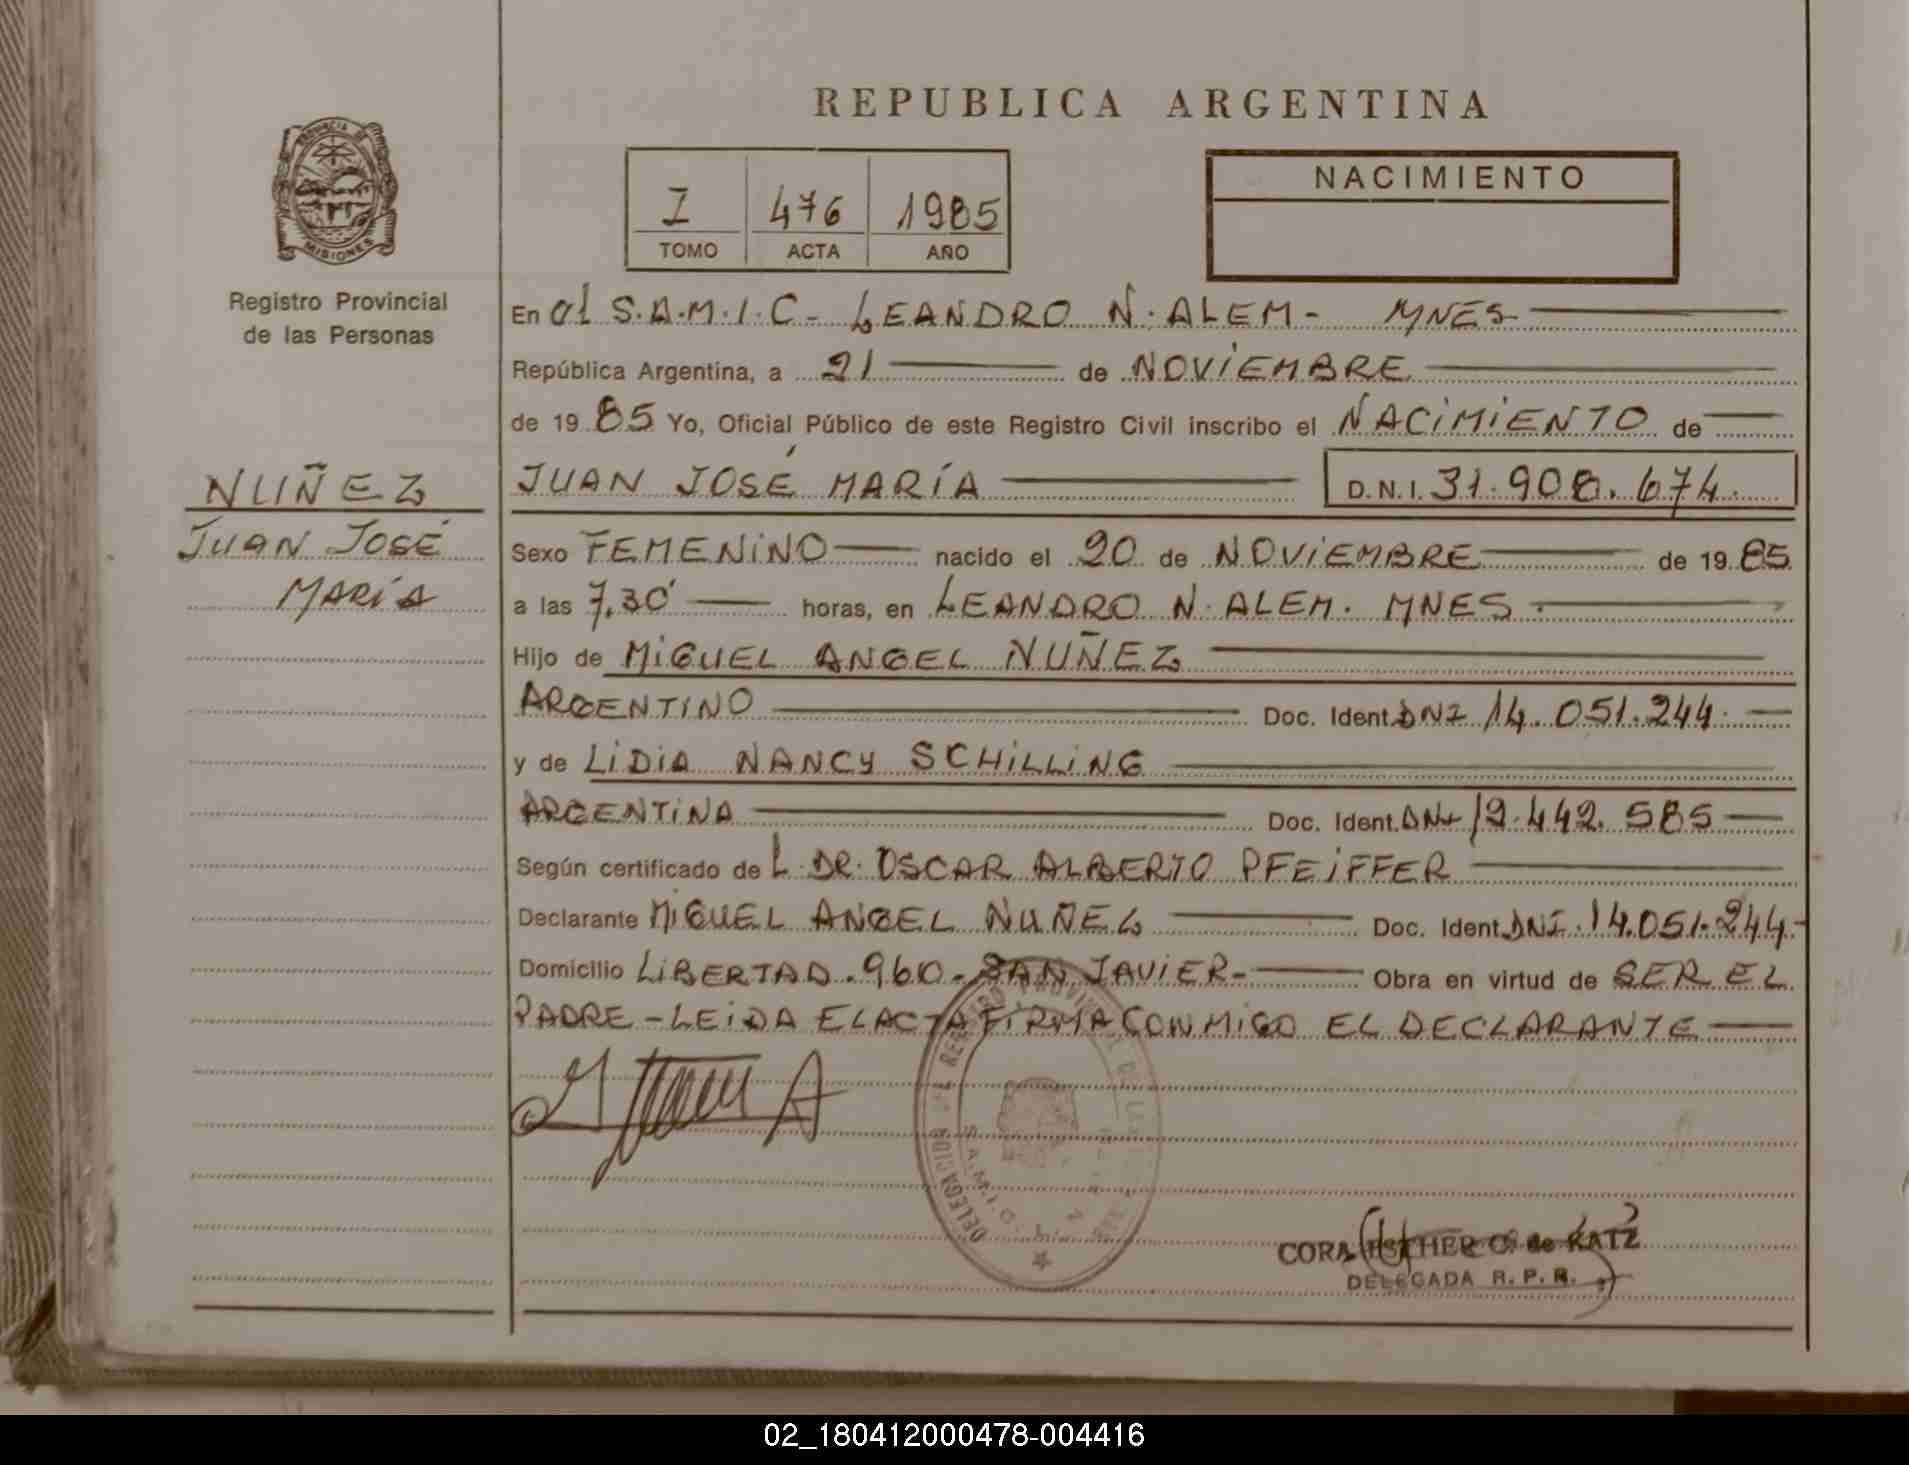 REPUBLICA ARGENTINA
PROVINCIA DE
MISIONES
Registro Provincial
de las Personas
I 476 1985
TOMO ACTA AÑO
NACIMIENTO
NUÑEZ
JUAN JOSÉ
MARÍA
En el S.A.M.I.C - LEANDRO N. ALEM - MNES
República Argentina, a 21 de NOVIEMBRE
de 1985 Yo, Oficial Público de este Registro Civil inscribo el NACIMIENTO de
JUAN JOSÉ MARÍA D.N.I. 31.908.674.
Sexo FEMENINO nacido el 20 de NOVIEMBRE de 1985
a las 7,30' horas, en LEANDRO N. ALEM. MNES.
Hijo de MIGUEL ANGEL NUÑEZ
ARGENTINO Doc. Ident. DNI 14.051.244.
y de LIDIA NANCY SCHILLING
ARGENTINA Doc. Ident. DNI 12.442.585
Según certificado de L DR. OSCAR ALBERTO PFEIFFER
Declarante MIGUEL ANGEL NUÑEZ Doc. Ident. DNI. 14.051.244.
Domicilio LIBERTAD. 960 - SAN JAVIER - Obra en virtud de SER EL
PADRE - LEIDA EL ACTA FIRMA CONMIGO EL DECLARANTE
DELEGACION DEL REGISTRO PROVINCIAL DE LAS
S.A.M.I.C.
CORA ESTHER O. de KATZ
DELEGADA R. P. R.
02_180412000478-004416